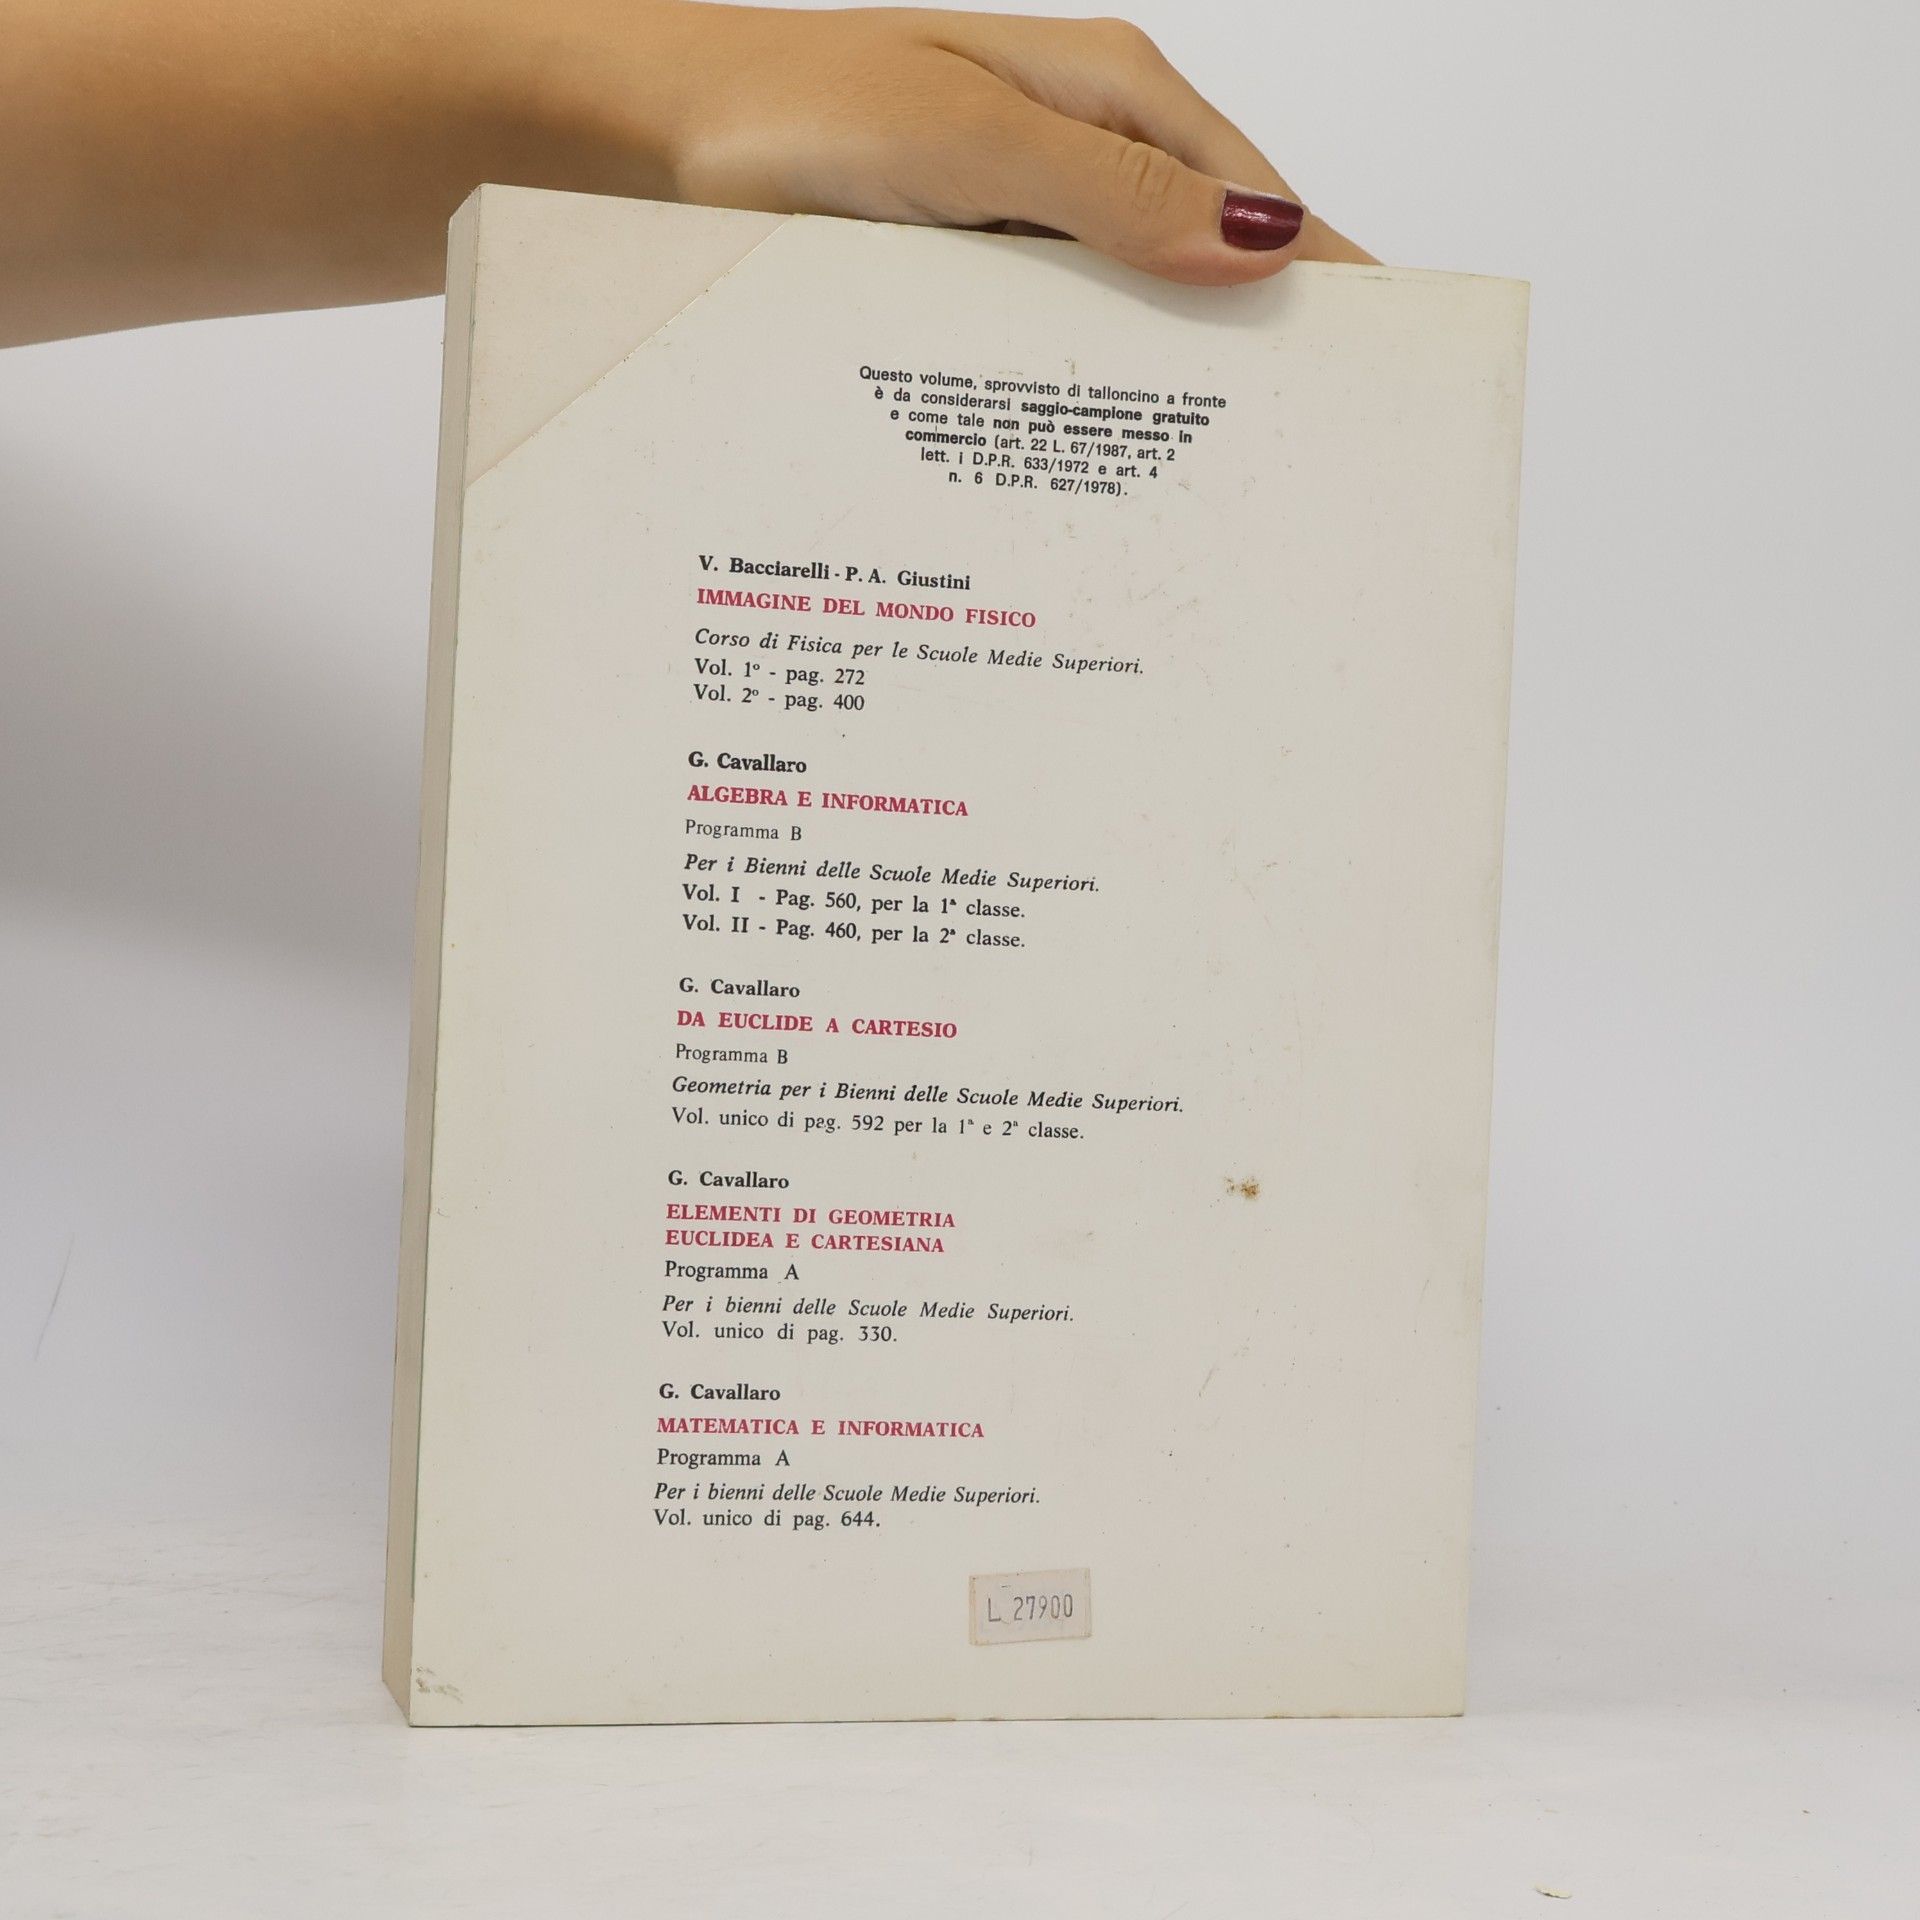 Questo volume, sprovvisto di talloncino a fronte
è da considerarsi saggio-campione gratuito
e come tale non può essere messo in
commercio (art. 22 L. 67/1987, art. 2
lett. i D.P.R. 633/1972 e art. 4
n. 6 D.P.R. 627/1978).
V. Bacciarelli - P. A. Giustini
IMMAGINE DEL MONDO FISICO
Corso di Fisica per le Scuole Medie Superiori.
Vol. 1º - pag. 272
Vol. 2º - pag. 400
G. Cavallaro
ALGEBRA E INFORMATICA
Programma B
Per i Bienni delle Scuole Medie Superiori.
Vol. I - Pag. 560, per la 1ª classe.
Vol. II - Pag. 460, per la 2ª classe.
G. Cavallaro
DA EUCLIDE A CARTESIO
Programma B
Geometria per i Bienni delle Scuole Medie Superiori.
Vol. unico di pag. 592 per la 1ª e 2ª classe.
G. Cavallaro
ELEMENTI DI GEOMETRIA
EUCLIDEA E CARTESIANA
Programma A
Per i bienni delle Scuole Medie Superiori.
Vol. unico di pag. 330.
G. Cavallaro
MATEMATICA E INFORMATICA
Programma A
Per i bienni delle Scuole Medie Superiori.
Vol. unico di pag. 644.
L 27900